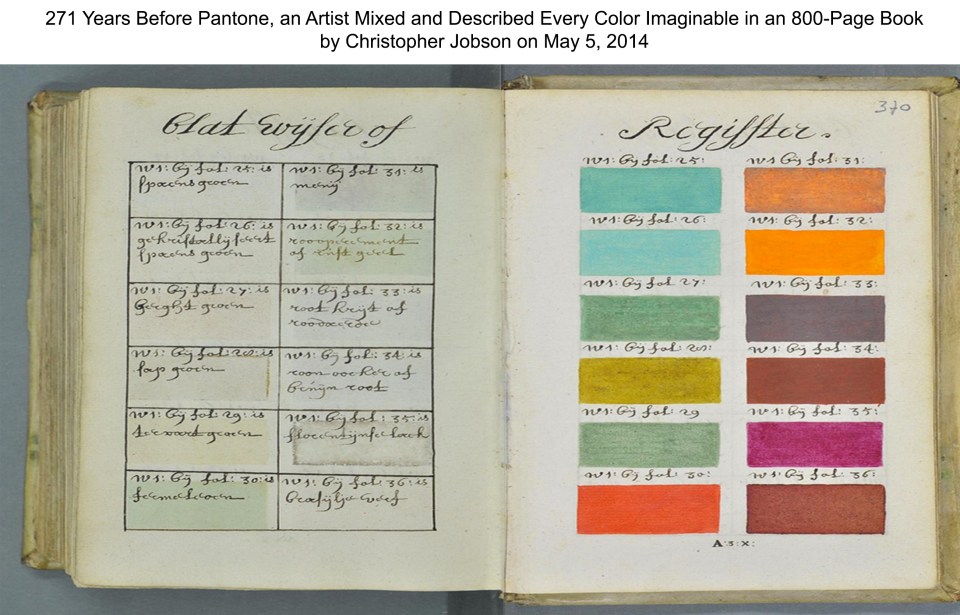 271 Years Before Pantone, an Artist Mixed and Described Every Color Imaginable in an 800-Page Book
by Christopher Jobson on May 5, 2014
Blat wijser of
N1: bij fol: 25: is
spaens groen
N1: bij fol: 31: is
menij
N1: bij fol: 26: is
gekristallijseert
spaens groen
N1: bij fol: 32: is
of rust geel
N1: bij fol: 27: is
berght groen
N1: bij fol: 33: is
root krijt of
N1: bij fol: 28: is
sap groen
N1: bij fol: 34 is
of
root
N1: bij fol: 29: is
groen
N1: bij fol: 35: is
florentijnse lack
N1: bij fol: 30: is
N1: bij fol: 36: is
verf
370
Register.
N1: bij fol: 25:
N1 bij fol: 31:
N1: bij fol: 26:
N1: bij fol: 32:
N1: bij fol: 27:
N1: bij fol: 33:
N1: bij fol: 28:
N1: bij fol: 34:
N1: bij fol: 29
N1: bij fol: 35:
N1: bij fol: 30:
N1: bij fol: 36:
A:3:X: